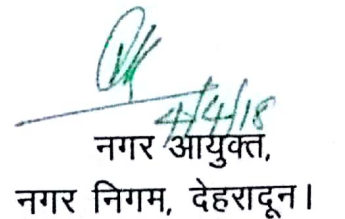 4/4/18
नगर आयुक्त,
नगर निगम, देहरादून।